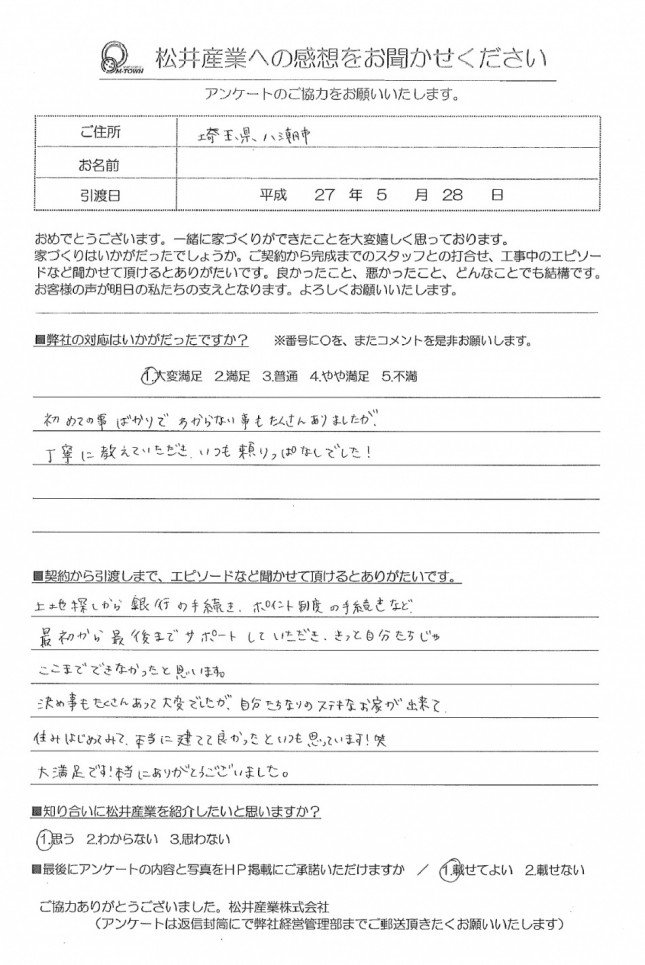 M-TOWN
松井産業への感想をお聞かせください
アンケートのご協力をお願いいたします。
ご住所 埼玉県、八潮市
お名前
引渡日 平成 27 年 5 月 28 日
おめでとうございます。一緒に家づくりができたことを大変嬉しく思っております。
家づくりはいかがだったでしょうか。ご契約から完成までのスタッフとの打合せ、工事中のエピソー
ドなど聞かせて頂けるとありがたいです。良かったこと、悪かったこと、どんなことでも結構です。
お客様の声が明日の私たちの支えとなります。よろしくお願いいたします。
■弊社の対応はいかがだったですか？ ※番号に〇を、またコメントを是非お願いします。
1.大変満足 2.満足 3.普通 4.やや満足 5.不満
初めての事ばかりでわからない事もたくさんありましたが、
丁寧に教えていただき、いつも頼りっぱなしでした！
■契約から引渡しまで、エピソードなど聞かせて頂けるとありがたいです。
土地探しから銀行の手続き、ポイント制度の手続きなど、
最初から最後までサポートしていただき、きっと自分たちじゃ
ここまでできなかったと思います。
決め事もたくさんあって大変でしたが、自分たちなりのステキなお家が出来て、
住みはじめてみて、本当に建てて良かったといつも思っています！笑
大満足です！本当にありがとうございました。
■知り合いに松井産業を紹介したいと思いますか？
1.思う 2.わからない 3.思わない
■最後にアンケートの内容と写真をHP掲載にご承諾いただけますか ／ 1.載せてよい 2.載せない
ご協力ありがとうございました。松井産業株式会社
（アンケートは返信封筒にて弊社経営管理部までご郵送頂きたくお願いいたします）